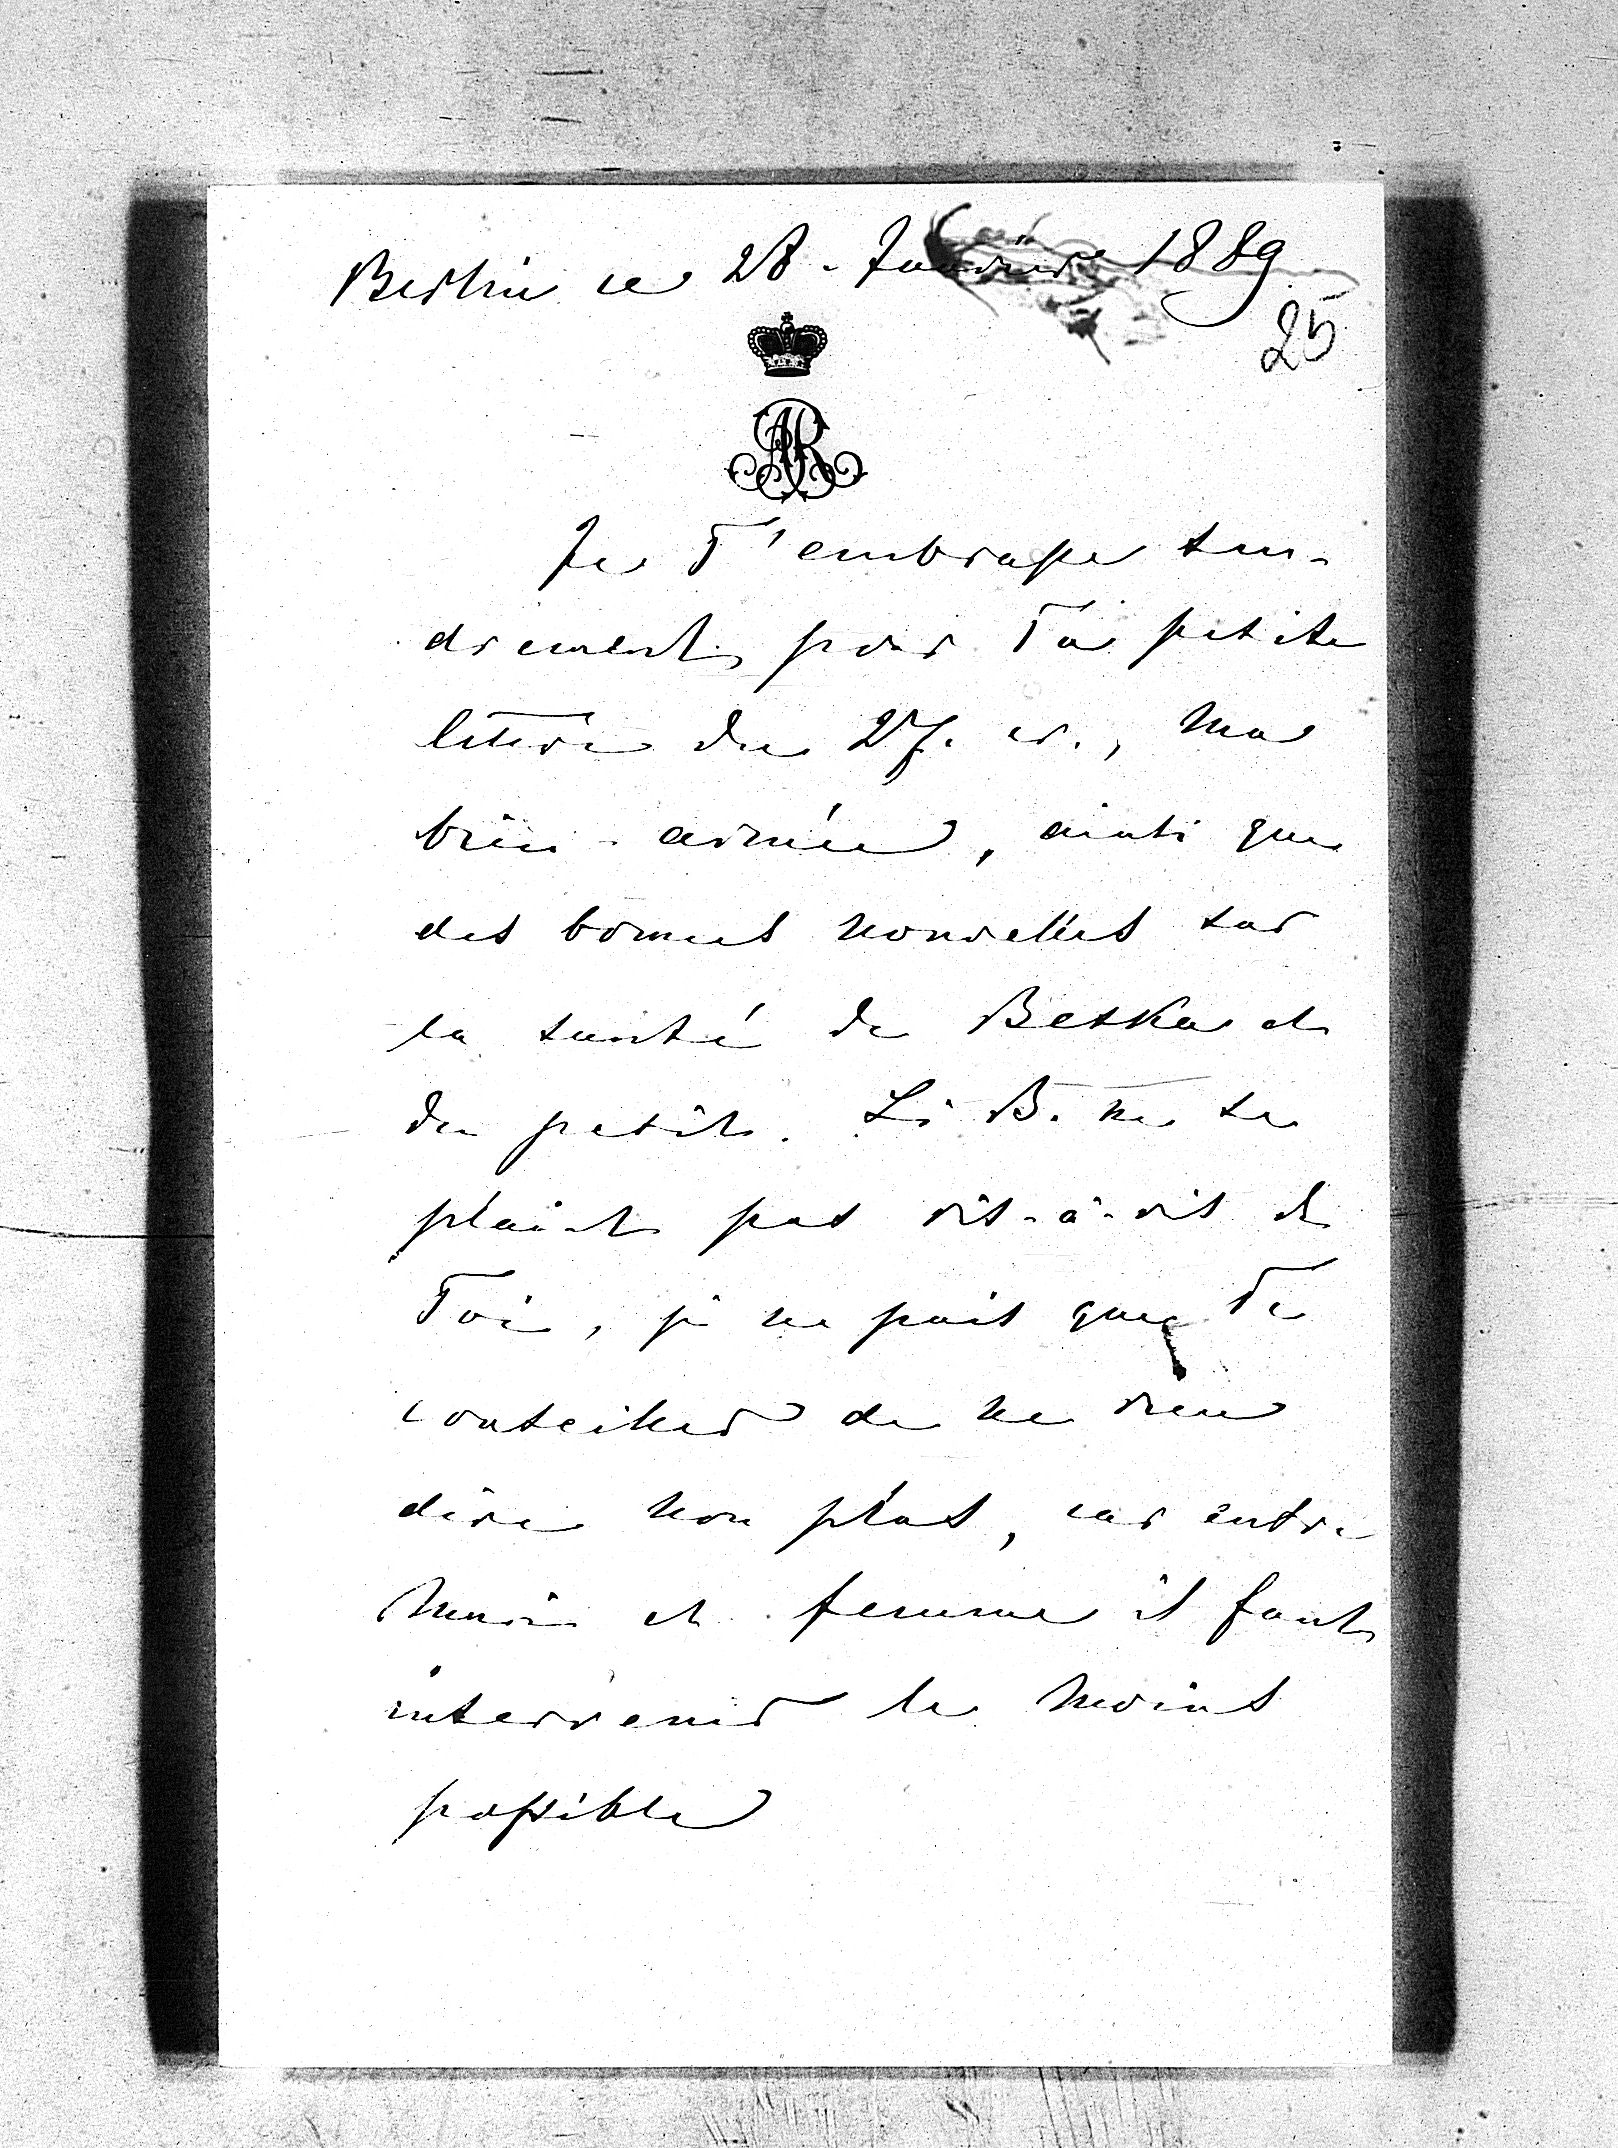 Berlin ce 28. Janvier 1889
25
AR
Je T'embrasse ten-
drement pour Ta petite
lettre du 27. cr., ma
bien-aimée, ainsi que
des bonnes nouvelles sur
la santé de Betka et
du petit. Si B. ne se
plaint pas vis-à-vis de
Toi, je ne puis que Te
conseiller de ne rien
dire non plus, car entre
mari et femme il faut
intervenir le moins
possible